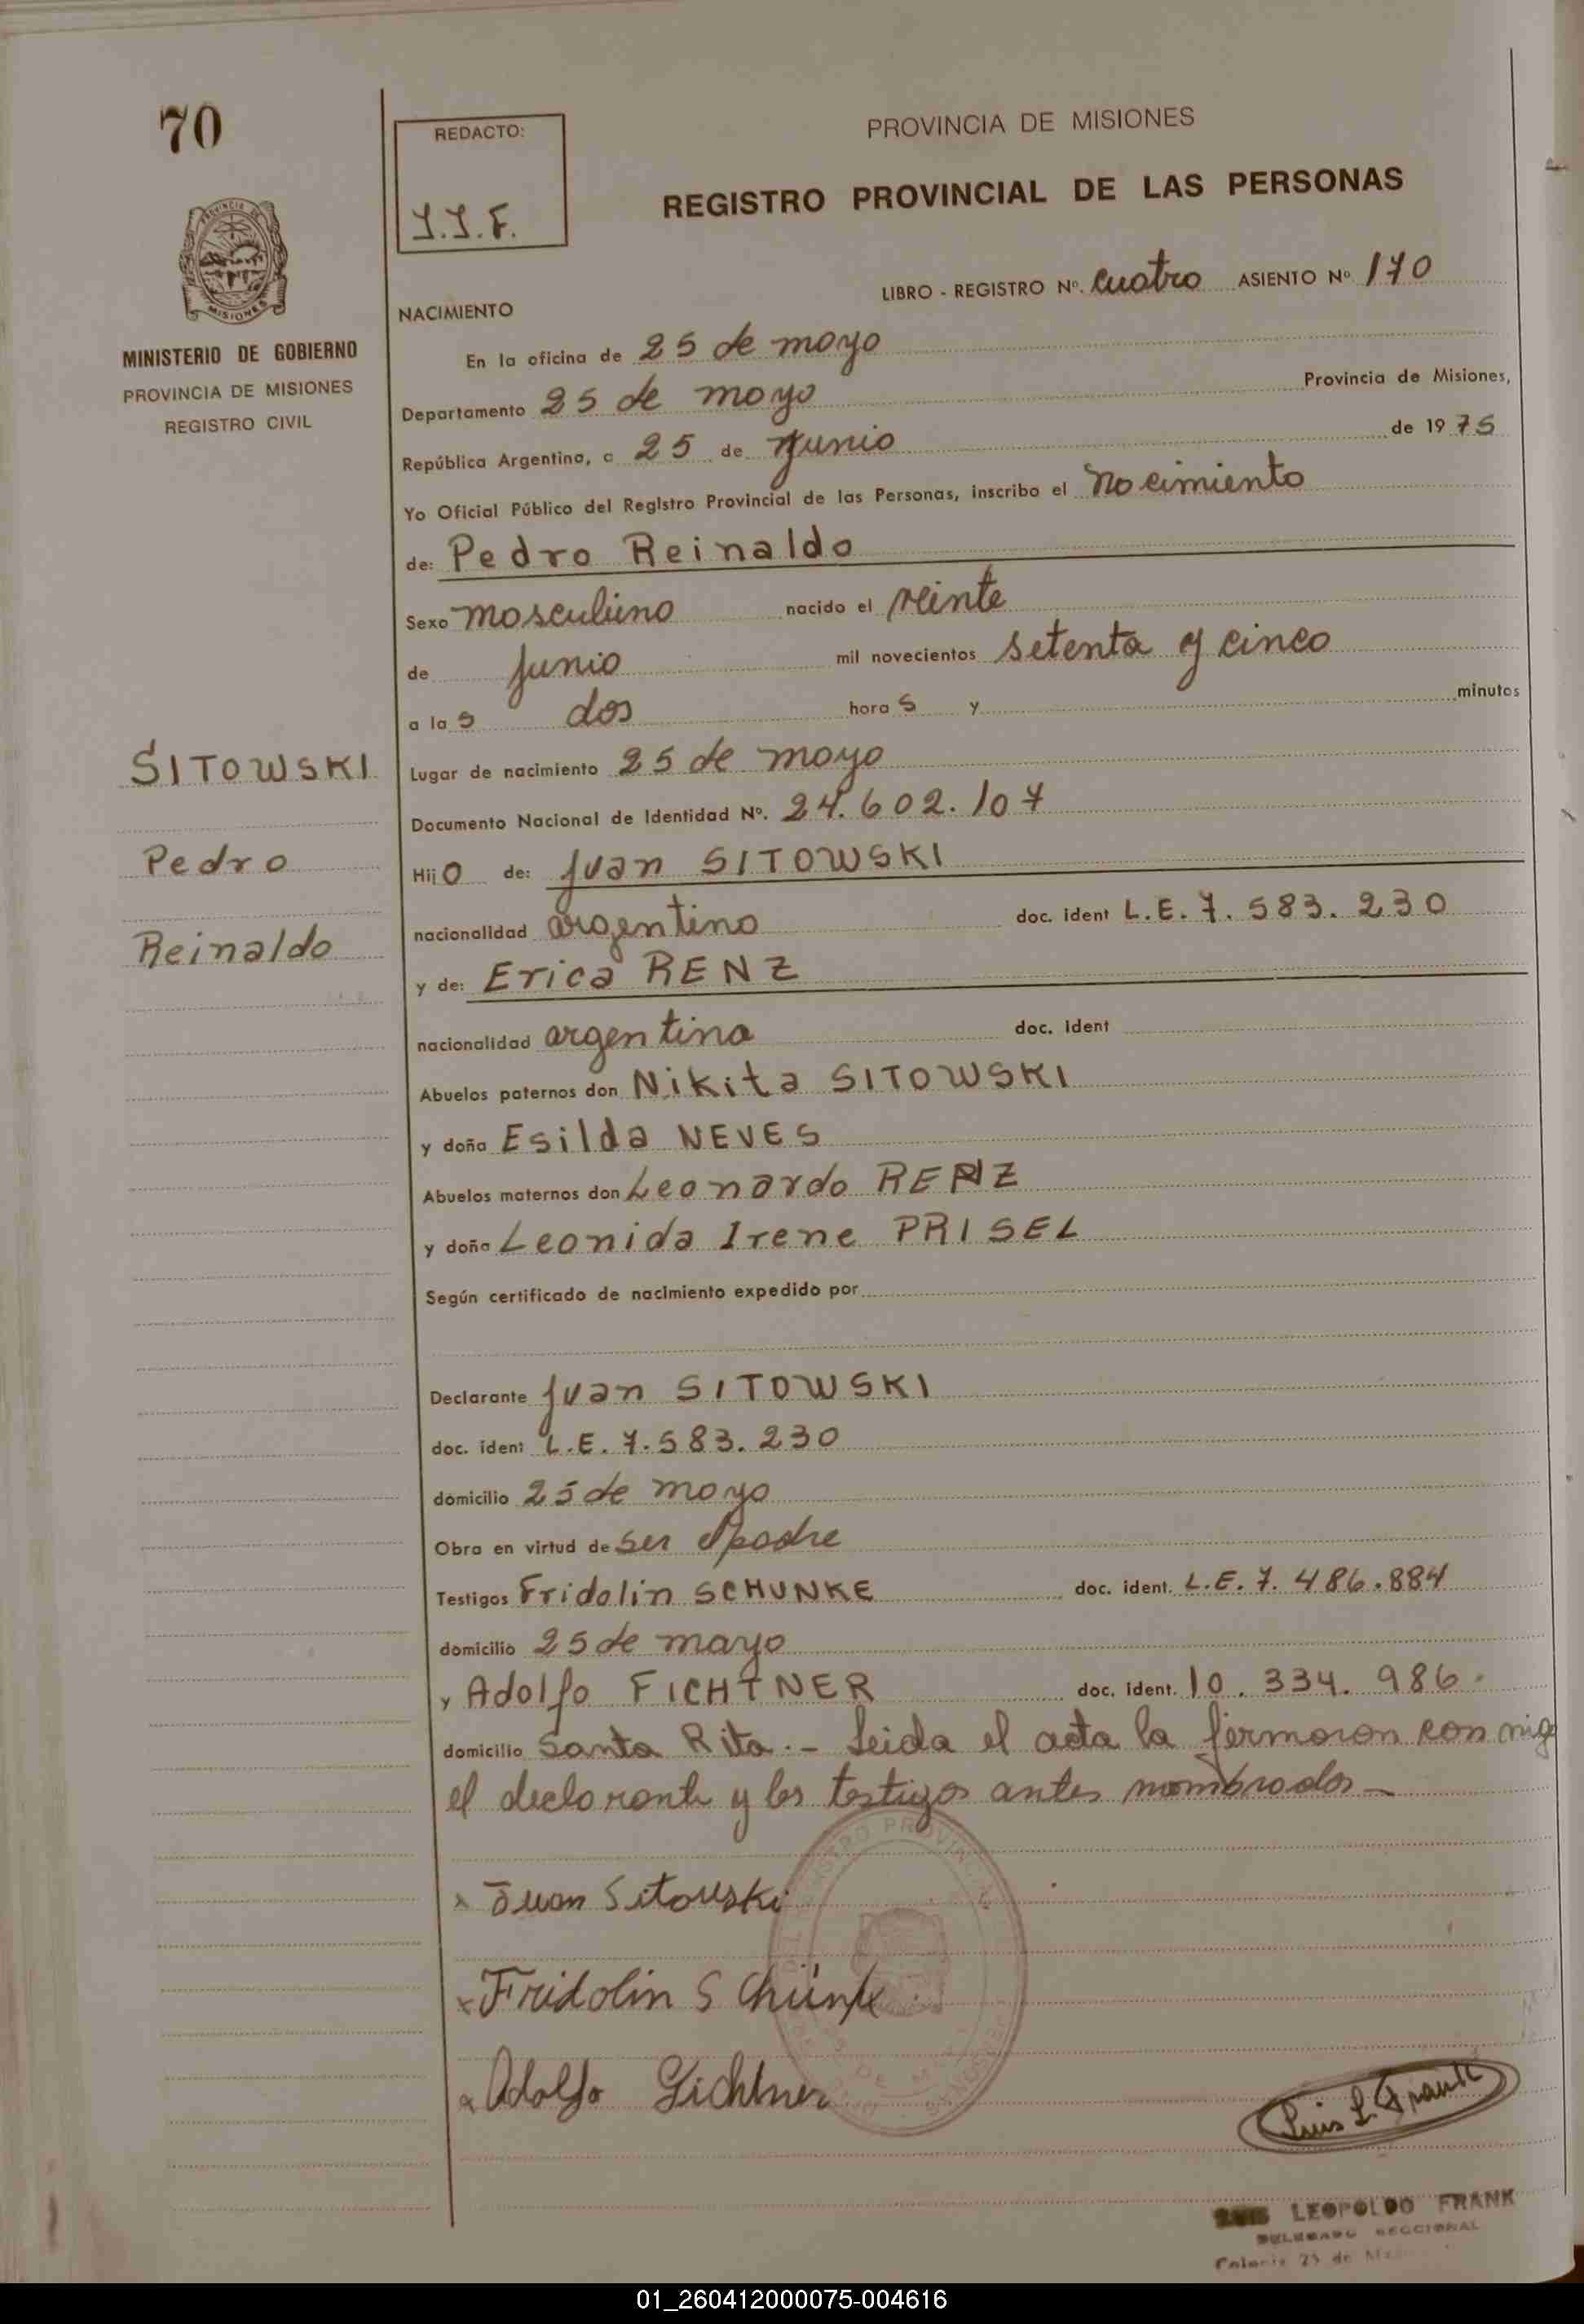 70
REDACTO:
PROVINCIA DE MISIONES
REGISTRO PROVINCIAL DE LAS PERSONAS
LIBRO - REGISTRO Nº. cuatro ASIENTO Nº. 170
MISIONES
MINISTERIO DE GOBIERNO
PROVINCIA DE MISIONES
REGISTRO CIVIL
NACIMIENTO
En la oficina de 25 de mayo
Departamento 25 de mayo Provincia de Misiones,
República Argentina, a 25 de Junio de 1975
Yo Oficial Público del Registro Provincial de las Personas, inscribo el nacimiento
de: Pedro Reinaldo
Sexo masculino nacido el veinte
de junio mil novecientos setenta y cinco
a las dos horas y minutos
SITOWSKI
Pedro
Reinaldo
Lugar de nacimiento 25 de mayo
Documento Nacional de Identidad Nº. 24.602.107
Hijo de: Juan SITOWSKI
nacionalidad argentino doc. ident L.E. 7.583.230
y de: Erica RENZ
nacionalidad argentina doc. ident
Abuelos paternos don Nikita SITOWSKI
y doña Esilda NEVES
Abuelos maternos don Leonardo RENZ
y doña Leonida Irene PRISEL
Según certificado de nacimiento expedido por
Declarante Juan SITOWSKI
doc. ident L.E. 7.583.230
domicilio 25 de mayo
Obra en virtud de ser el padre
Testigos Fridolin SCHUNKE doc. ident. L.E. 7.486.884
domicilio 25 de mayo
y Adolfo FICHTNER doc. ident. 10.334.986.
domicilio Santa Rita.- Leida el acta la firmaron conmigo
el declarante y los testigos antes nombrados.-
x Juan Sitowski
x Fridolin Schünke
x Adolfo Fichtner
Luis L. Frank
LUIS LEOPOLDO FRANK
DELEGADO SECCIONAL
Colonia 25 de Mayo
01_260412000075-004616